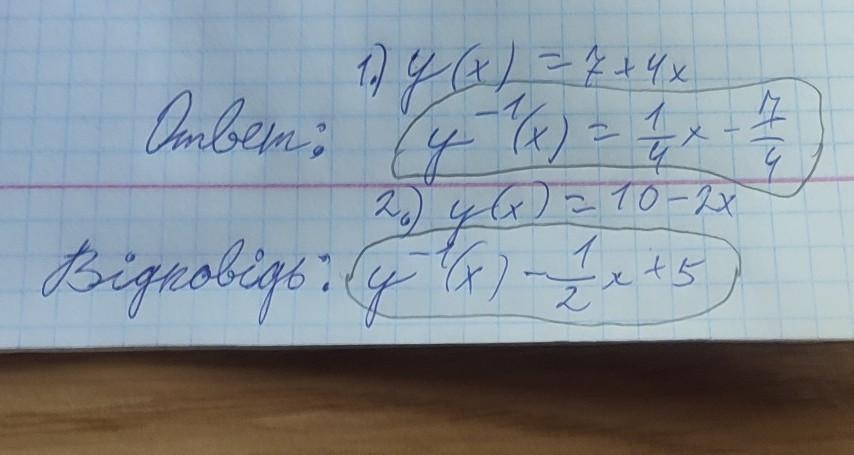 1.) y(x) = 7+4x
Ответ: y⁻¹(x) = 1/4 x - 7/4
2.) y(x) = 10-2x
Відповідь: y⁻¹(x) - 1/2 x + 5